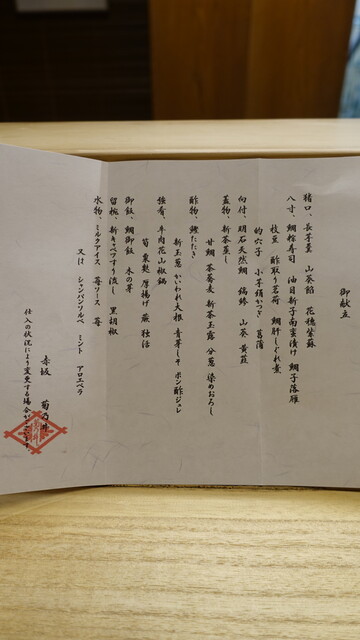 御献立
猪口、長芋羹 山葵餡 花穂紫蘇
八寸、鯛粽寿司 油目新子南蛮漬け 鯛子落雁
枝豆 酢取り茗荷 鯛肝しぐれ煮
的穴子 小芋絹かつぎ 菖蒲
向付、明石天然鯛 縞鯵 山葵 黄菊
蓋物、新茶蒸し
甘鯛 茶蕎麦 新茶玉露 分葱 染めおろし
酢物、鰹たたき
新玉葱 かいわれ大根 青芽しそ ポン酢ジュレ
強肴、牛肉花山椒鍋
筍 粟麩 厚揚げ 蕨 独活
御飯、鯛御飯 木の芽
留椀、新キャベツすり流し 黒胡椒
水物、ミルクアイス 苺ソース 苺
又は シャンパンソルベ ミント アロエベラ
赤坂 菊乃井
仕入の状況により変更する場合がございます